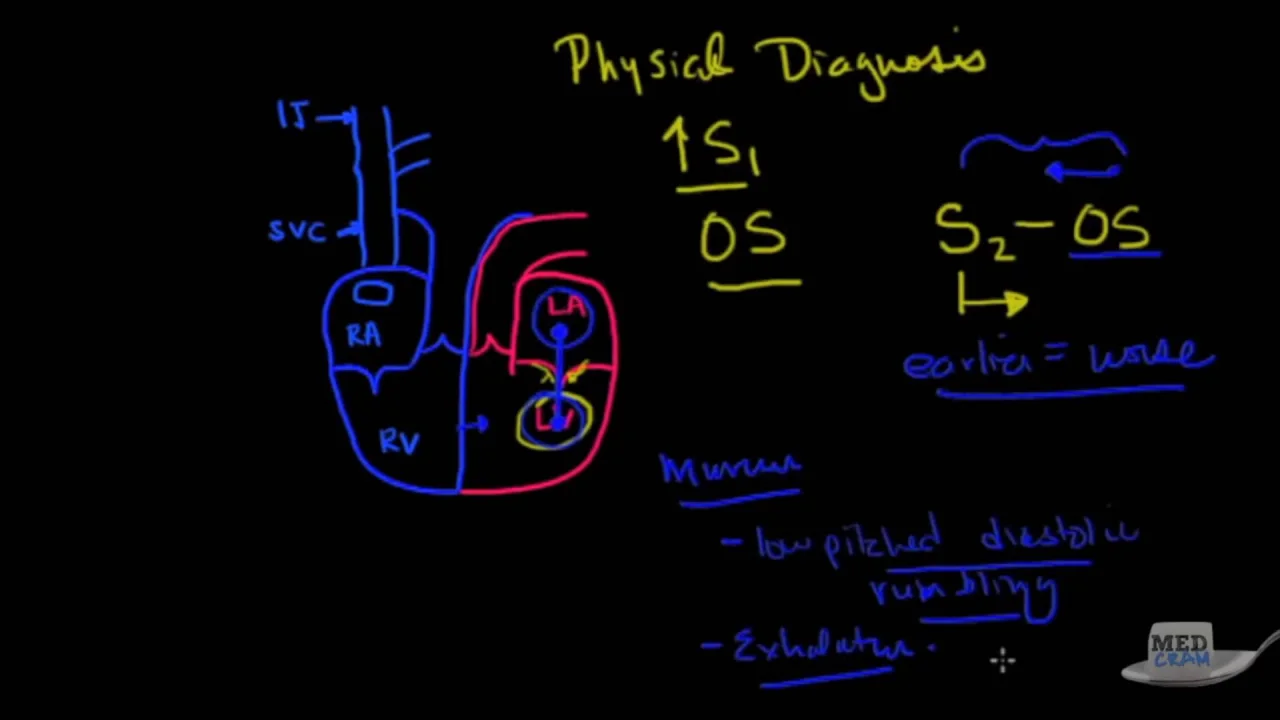 Physical Diagnosis
IJ
↑S1
SVC
OS
S2 - OS
LA
RA
earlier = worse
LV
RV
Murmur
- low pitched diastolic
rumbling
- Exhalation.
MED
CRAM